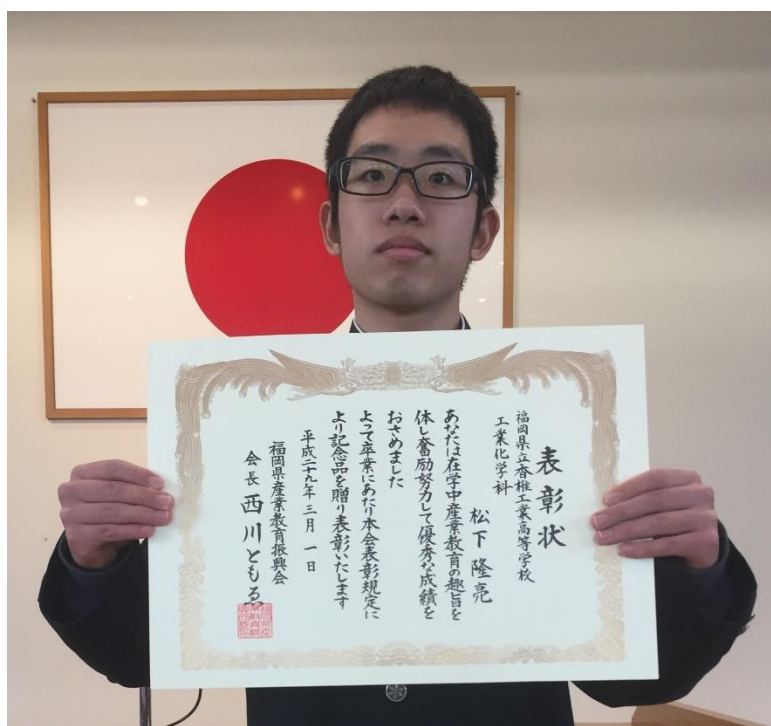 表彰状
福岡県立香椎工業高等学校
工業化学科
松下隆亮
あなたは在学中産業教育の趣旨を
体し奮励努力して優秀な成績を
おさめました
よって卒業にあたり本会表彰規定に
より記念品を贈り表彰いたします
平成二十九年三月一日
福岡県産業教育振興会
会長 西川ともゑ